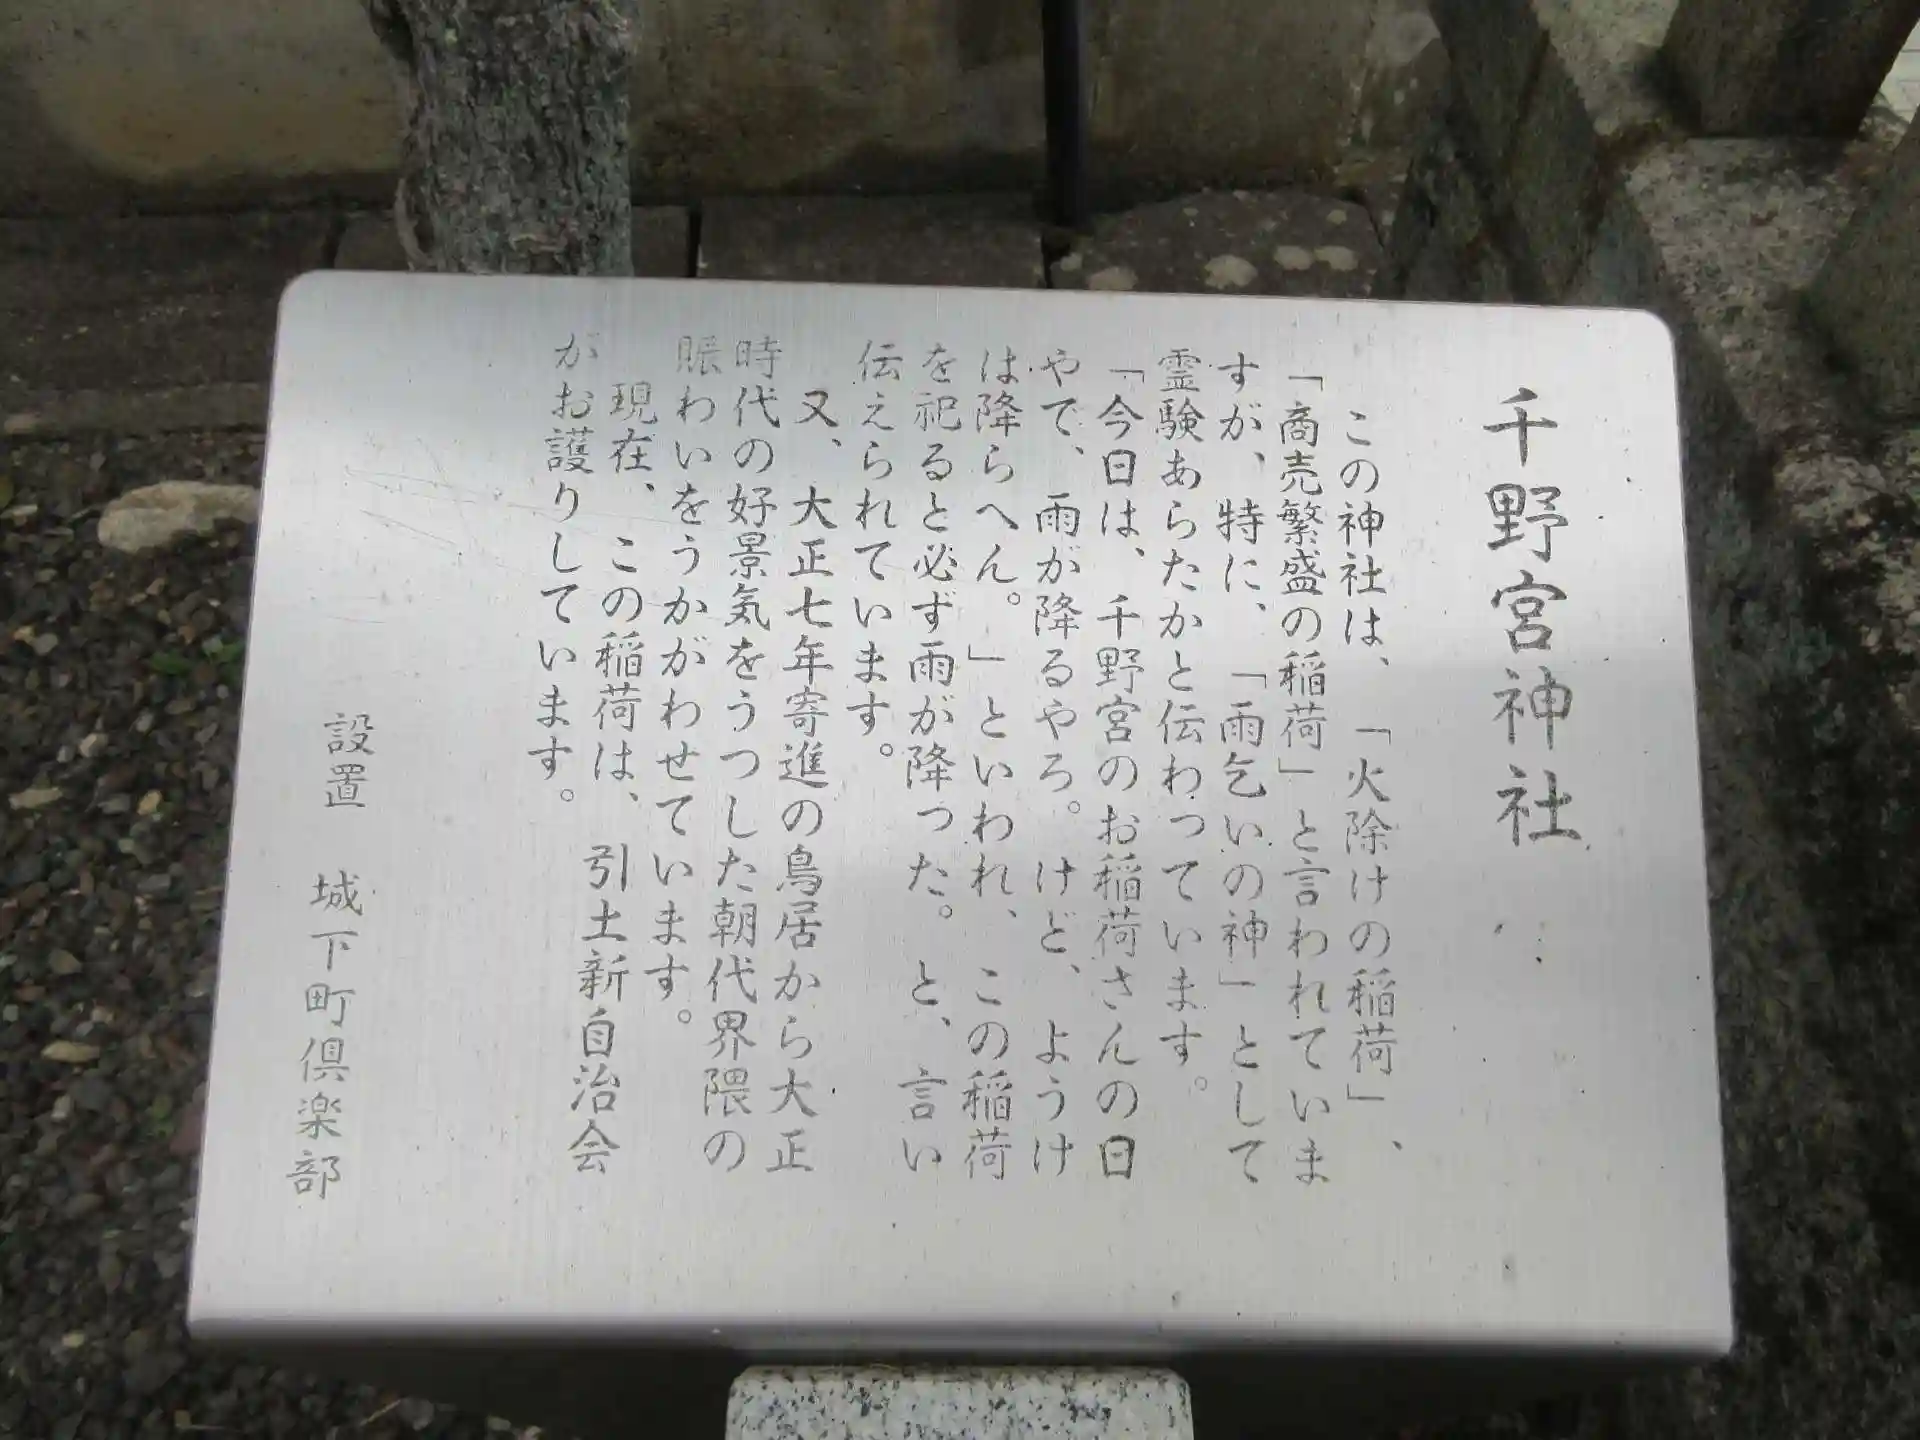 千野宮神社
この神社は、「火除けの稲荷」、
「商売繁盛の稲荷」と言われていま
すが、特に、「雨乞いの神」として
霊験あらたかと伝わっています。
「今日は、千野宮のお稲荷さんの日
やで、雨が降るやろ。けど、ようけ
は降らへん。」といわれ、この稲荷
を祀ると必ず雨が降った。と、言い
伝えられています。
又、大正七年寄進の鳥居から大正
時代の好景気をうつした朝代界隈の
賑わいをうかがわせています。
現在、この稲荷は、引土新自治会
がお護りしています。
設置 城下町倶楽部